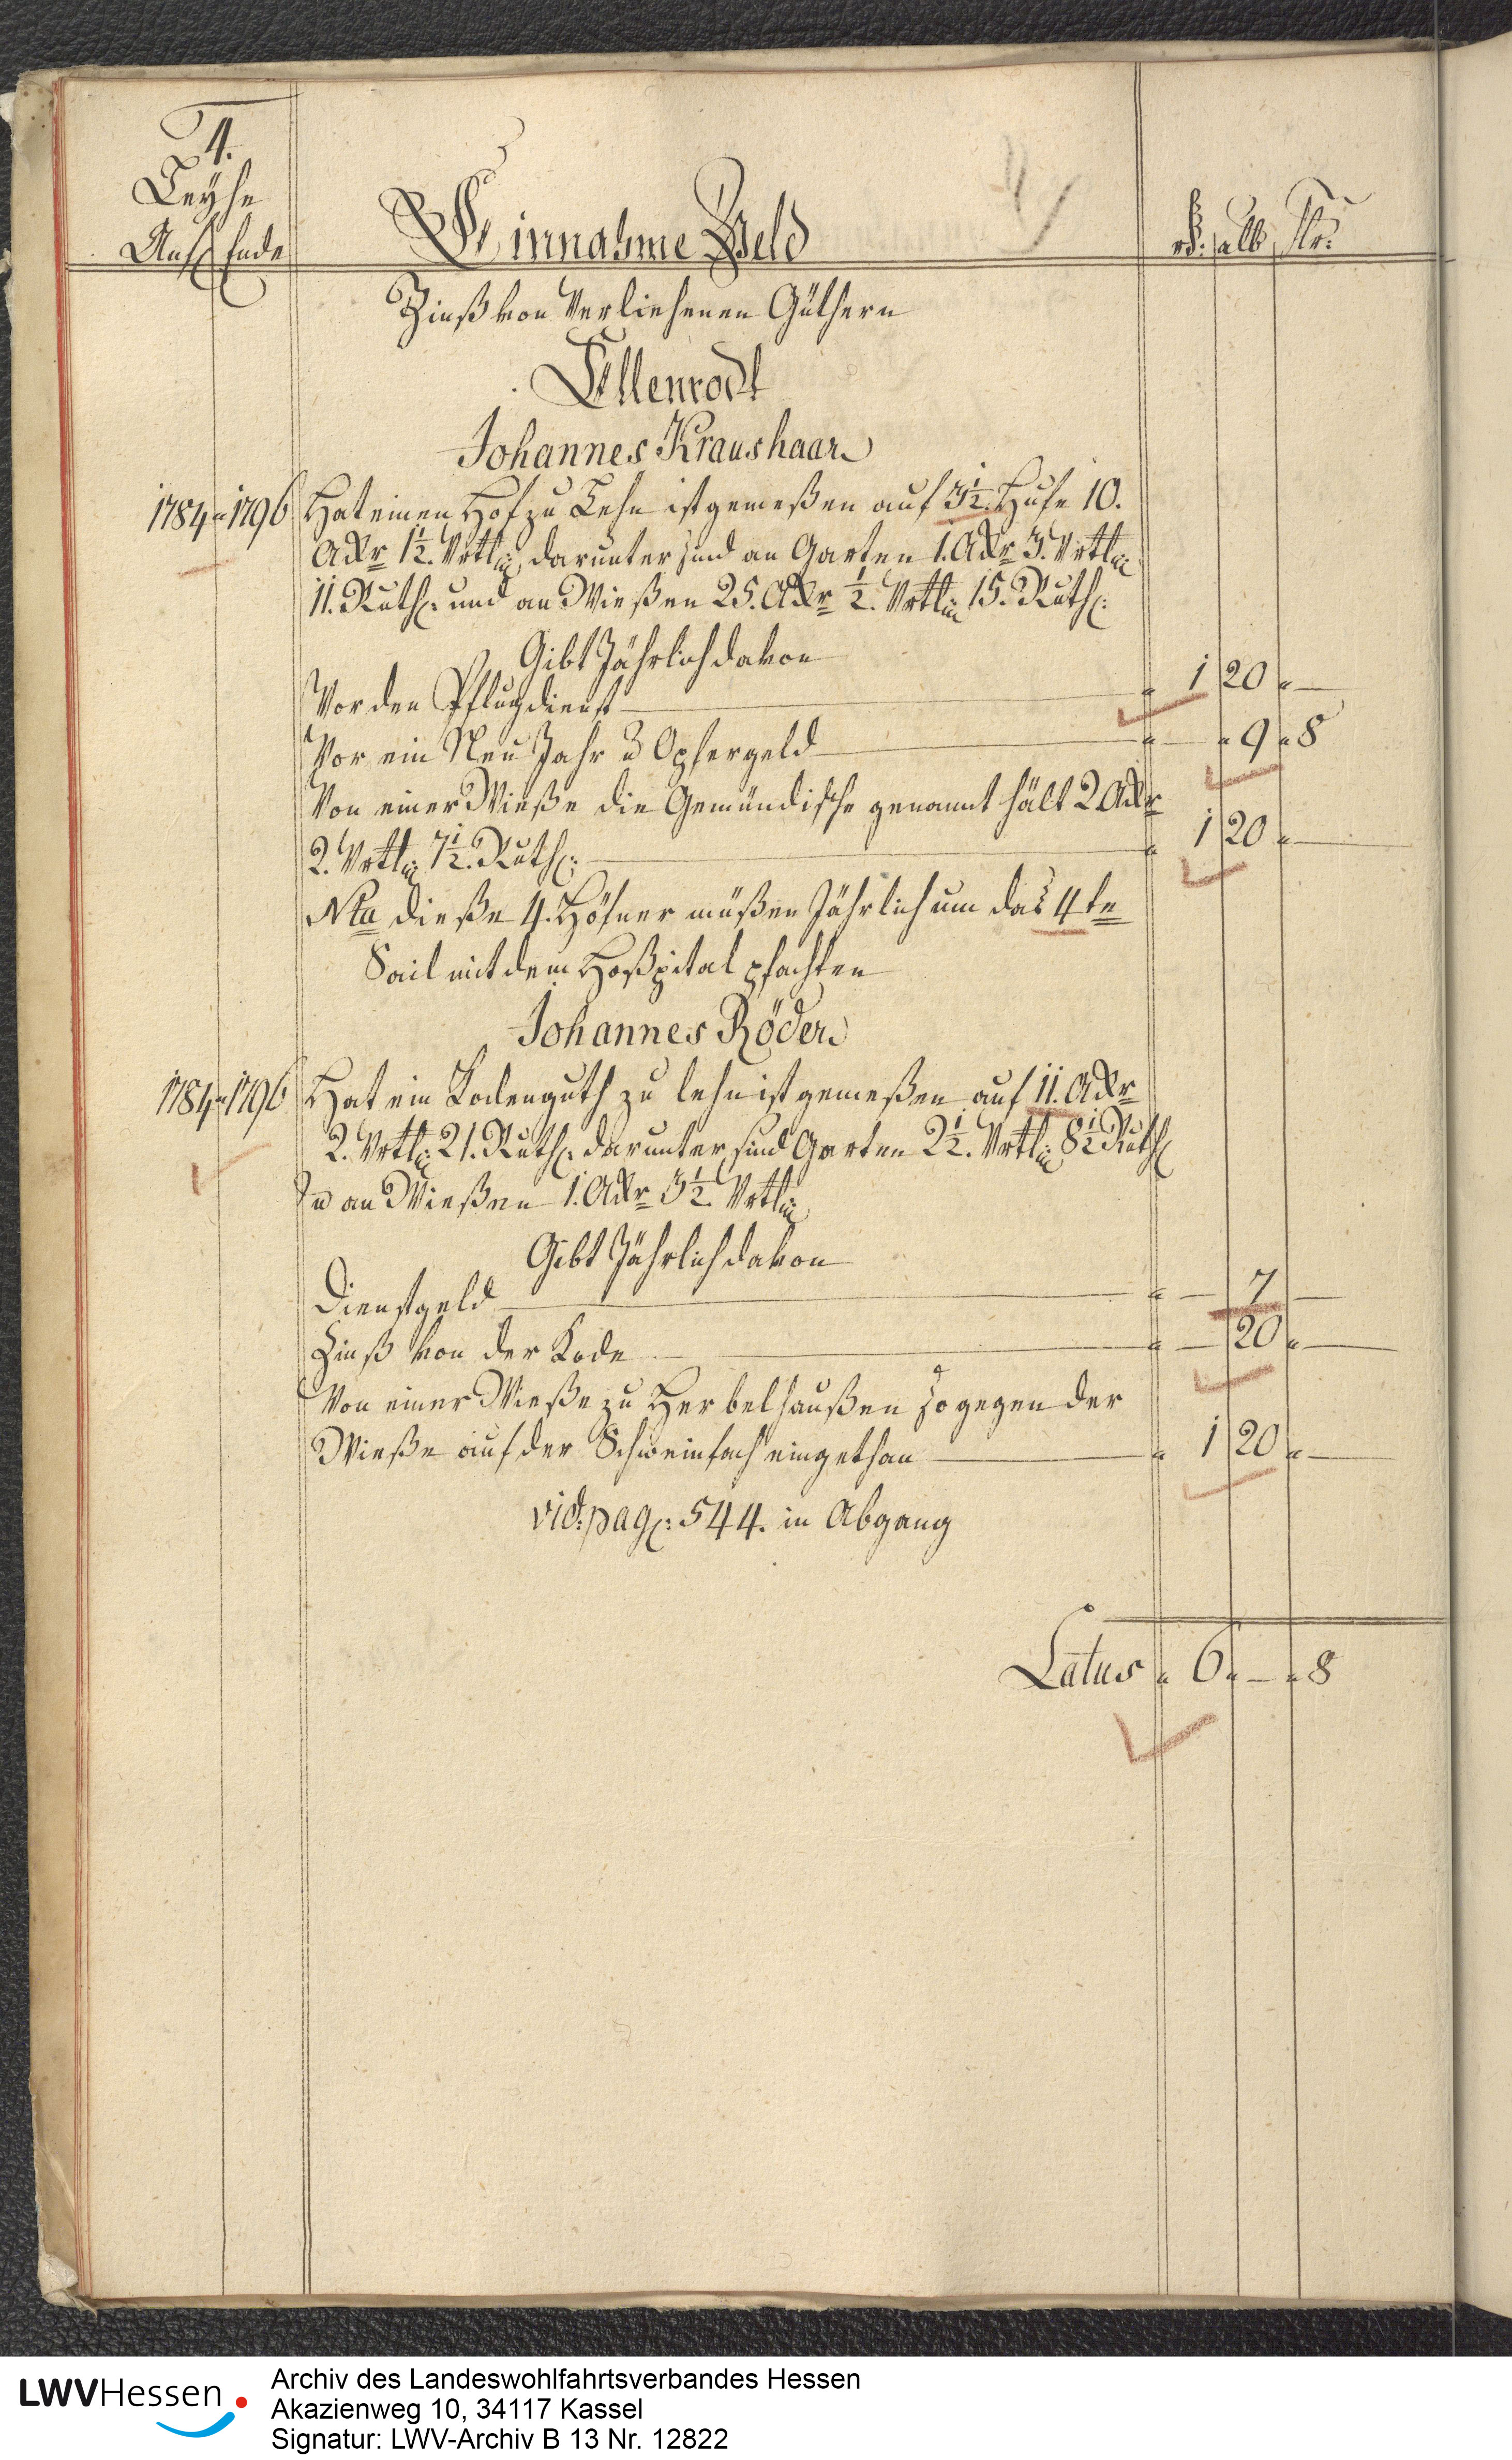 4.
Leyhe
Anf. Ende
Einnahme Geld
rthl. alb hlr:
Zinß von Verliehenen Güthern
Ellenrodt
Johannes Kraushaar
1784 " 1796 Hat einen Hof zu Lehn ist gemeßen auf 3½. Hufe 10.
Akr 1½. Vrtl: darunter sind an Garten 1. Akr 3. Vrtl:
11. Ruth: und an Wießen 25. Akr ½. Vrtl: 15. Ruth:
Gibt Jährlich davon
Vor den Pflugdienst " 1 20 " —
Vor ein Neu Jahr u Opfergeld " — " 9 " 8
Von einer Wieße die Gemündische genannt hält 2 Akr
2. Vrtl: 7½. Ruth: " 1 20 " —
Nta dieße 4. Höfner müßen Jährlich um das 4te
Sail mit dem Hoßpital pfachten
Johannes Röder
1784 " 1796 Hat ein Kodenguth zu lehn ist gemeßen auf 11. Akr
2. Vrtl: 21. Ruth: darunter sind Garten 2½. Vrtl: 8½ Ruth:
u an Wießen 1. Akr 3½ Vrtl:
Gibt Jährlich davon
Dienstgeld " — 7 —
Zinß von der Kode " — 20 " —
Von einer Wieße zu Herbelhaußen so gegen der
Wieße auf der Schweinfach eingethan " 1 20 " —
vid: pag: 544. in Abgang
Latus " 6 " — " 8
LWVHessen
Archiv des Landeswohlfahrtsverbandes Hessen
Akazienweg 10, 34117 Kassel
Signatur: LWV-Archiv B 13 Nr. 12822